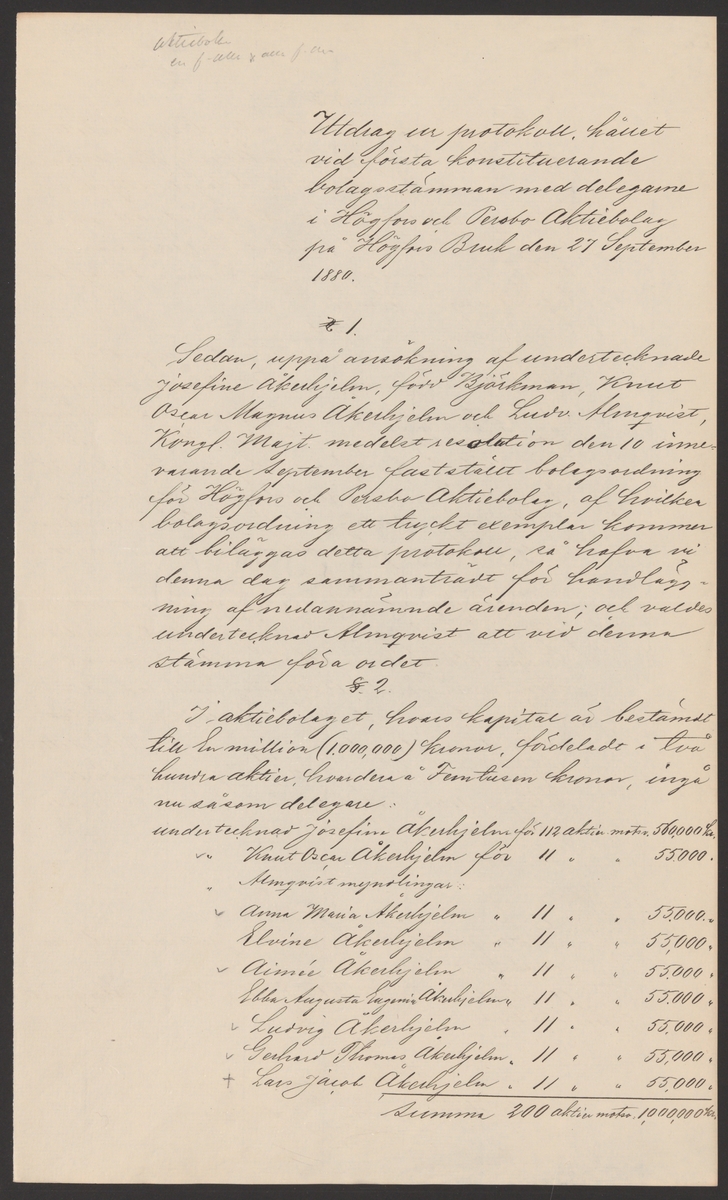 Aktieboken
Utdrag ur protokoll, hållet
vid första konstituerande
bolagsstämman med delegarne
i Högfors och Persbo Aktiebolag
på Högfors Bruk den 27 September
1880.
§ 1.
Sedan, uppå ansökning af undertecknade
Josefine Åkerhjelm, född Björkman, Knut
Oscar Magnus Åkerhjelm och Ludv. Almqvist,
Kongl. Majt. medelst resolution den 10 inne-
varande September fastställt bolagsordning
för Högfors och Persbo Aktiebolag, af hvilken
bolagsordning ett tryckt exemplar kommer
att biläggas detta protokoll, så hafva vi
denna dag sammanträdt för handlägg-
ning af nedannämnde ärenden; och valdes
undertecknad Almqvist att vid denna
stämma föra ordet.
§. 2.
I aktiebolaget, hvars kapital är bestämdt
till En million (1.000,000) kronor, fördeladt i två
hundra aktier, hvardera à Femtusen kronor, ingå
nu såsom delegare:
undertecknad Josefine Åkerhjelm för 112 aktier motsv. 560,000 kr.
" Knut Oscar Åkerhjelm för 11 " " 55.000 "
" Almqvist myndlingar:
Anna Maria Åkerhjelm " 11 " " 55.000 "
Elvine Åkerhjelm " 11 " " 55,000 "
Aimée Åkerhjelm " 11 " " 55.000 "
Ebba Augusta Eugenie Åkerhjelm " 11 " " 55.000 "
Ludvig Åkerhjelm " 11 " " 55,000 "
Gerhard Thomas Åkerhjelm " 11 " " 55,000 "
+ Lars Jacob Åkerhjelm " 11 " " 55,000 "
Summa 200 aktier motsv. 1,000,000 kr.